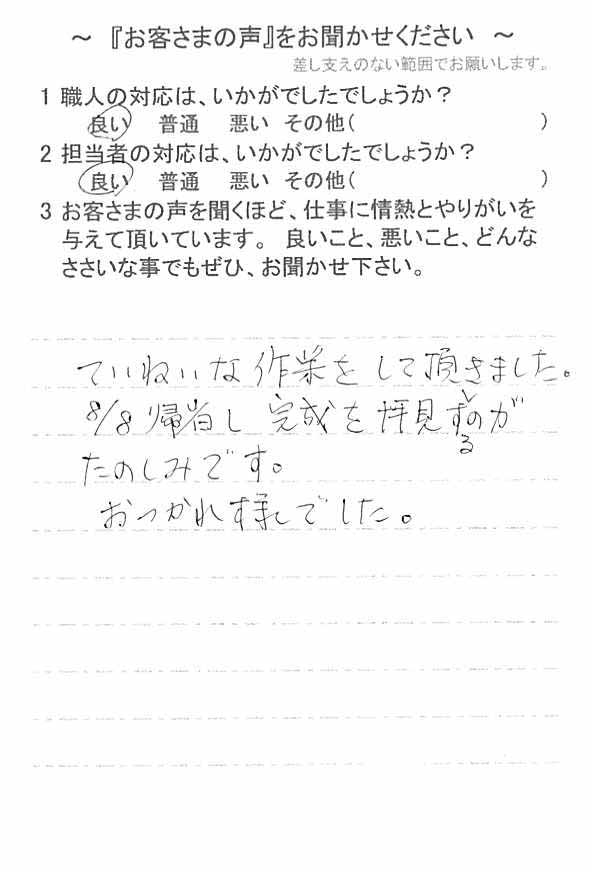 ～ 『お客さまの声』をお聞かせください ～
差し支えのない範囲でお願いします。
1 職人の対応は、いかがでしたでしょうか？
良い 普通 悪い その他( )
2 担当者の対応は、いかがでしたでしょうか？
良い 普通 悪い その他( )
3 お客さまの声を聞くほど、仕事に情熱とやりがいを
与えて頂いています。 良いこと、悪いこと、どんな
ささいな事でもぜひ、お聞かせ下さい。
ていねいな作業をして頂きました。
8/8 帰省し 完成を拝見するのが
たのしみです。
おつかれ様でした。